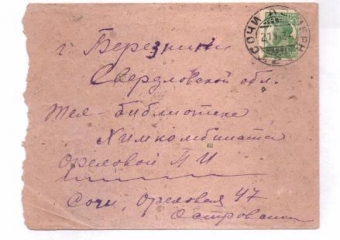 СОЧИ ЧЕРН
г. Березники
Свердловской обл.
Тех-библиотека
Химкомбината
Ореловой П И
Сочи, Ореховая 47
Островский